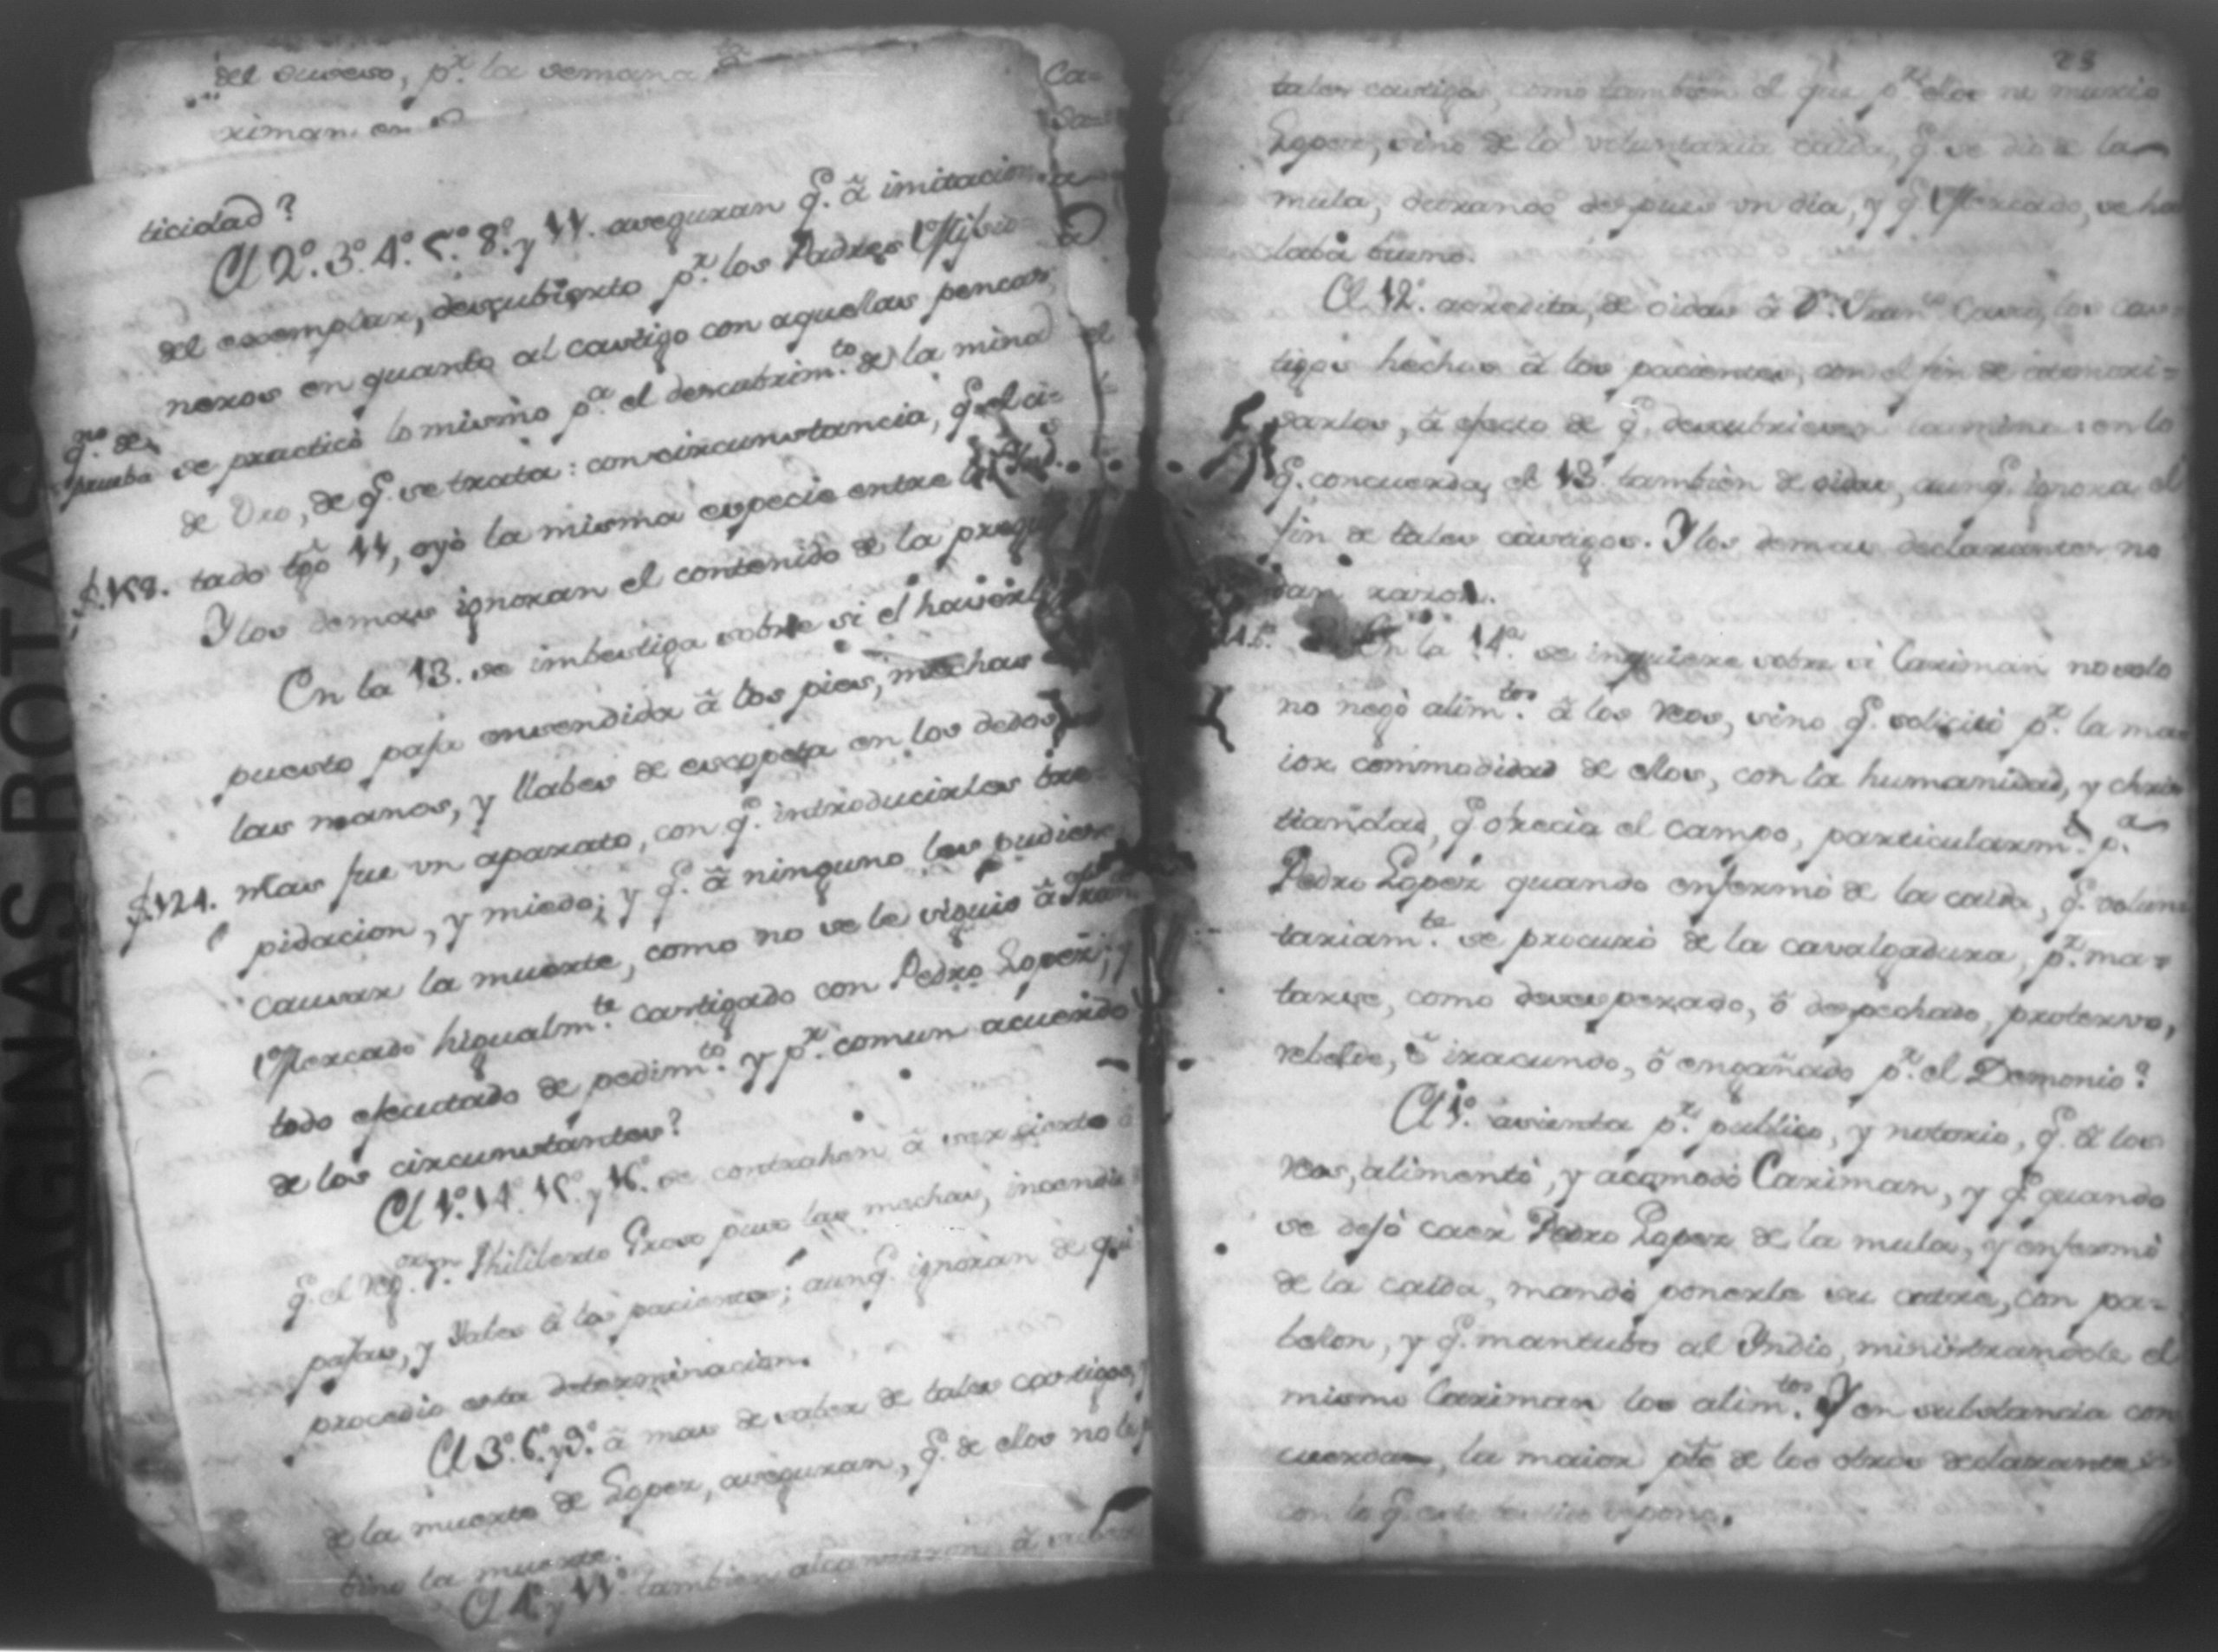 del suceso, p.r la semana
ximan en
ticidad?
El 2.º 3.º 4.º 5.º 8.º y 11. aseguran q.e â imitacion
del exemplar, descubierto p.r los Padres Misio
neros en quanto al castigo con aquellas pencas,
se practicò lo mismo p.a el descubrim.to de la mina
de Oro, de q.e se trata: con circunstancia, q.e el ci=
tado tgô 11, oyò la misma especie entre los Ind.
Y los demas ignoran el contenido de la preg
En la 13. se imbestiga sobre si el haverl
puesto paja encendida â los pies, mechas
las manos, y llabes de escopeta en los dedos
mas fue un aparato, con q.e introducirles tre
pidacion, y miedo; y q.e â ninguno les pudier
causar la muerte, como no se le siguiò â Fran
Mercado higualm.te castigado con Pedro Lopez; y
todo efecutado de pedim.to y p.r comun acuerdo
de los circunstantes?
El 1.º 14.º 15.º y 16.º se contrahen â ser cierto
q.e el Reg.or Philiberto puso las mechas, incendiò
pajas, y llabes â los pacientes; aunq.e ignoran de qui
procediò esta determinacion.
El 3.º 6.º y 9.º â mas de saber de tales castigos,
de la muerte de Lopez, aseguran, q.e de ellos no le
bino la muerte.
El 4.º y 11.º tambien alcanzaron â saber
q.no de
prueba
f.158.
f.124.
Ca=
23
tales castigos, como tambien el que p.r ellos no murio
Lopez, sino de la voluntaria caida, q.e se diò de la
mula, durando despues un dia, y q.e Mercado, se ha
laba bueno.
El 12.º acredita, de oidas â D.n Fran.co los cas=
tigos hechos â los pacientes, con el fin de atemori=
sarlos, â efecto de q.e descubriesen la mina: en lo
q.e concuerda el 13 tambien de oidas, aunq.e ignora el
fin de tales castigos. Y los demas declarantes no
dan razon.
En la 14.a se inquiere sobre si Cariman no solo
no negò alim.tos â los Reos, sino q.e solicitò p.r la ma
ior commodidad de ellos, con la humanidad, y chris
tiandad, q.e ofrecia el campo, particularm.te p.a
Pedro Lopez quando enfermò de la caida, q.e volun
tariam.te se procurò de la cavalgadura, p.r ma=
tarse, como desesperado, ô despechado, protervo,
rebelde, ô iracundo, ô engañado p.r el Demonio?
El 1.º asienta p.r publico, y notorio, q.e â los
Reos, alimentò, y acomodò Cariman, y q.e quando
se dejò caer Pedro Lopez de la mula, y enfermò
de la caida, mandò ponerle su catre, con pa=
bellon, y q.e mantubo al Indio, ministrandole el
mismo Cariman los alim.tos Y en substancia con
cuerdan, la maior pte de los otros declarantes
con lo q.e este testigo expone.